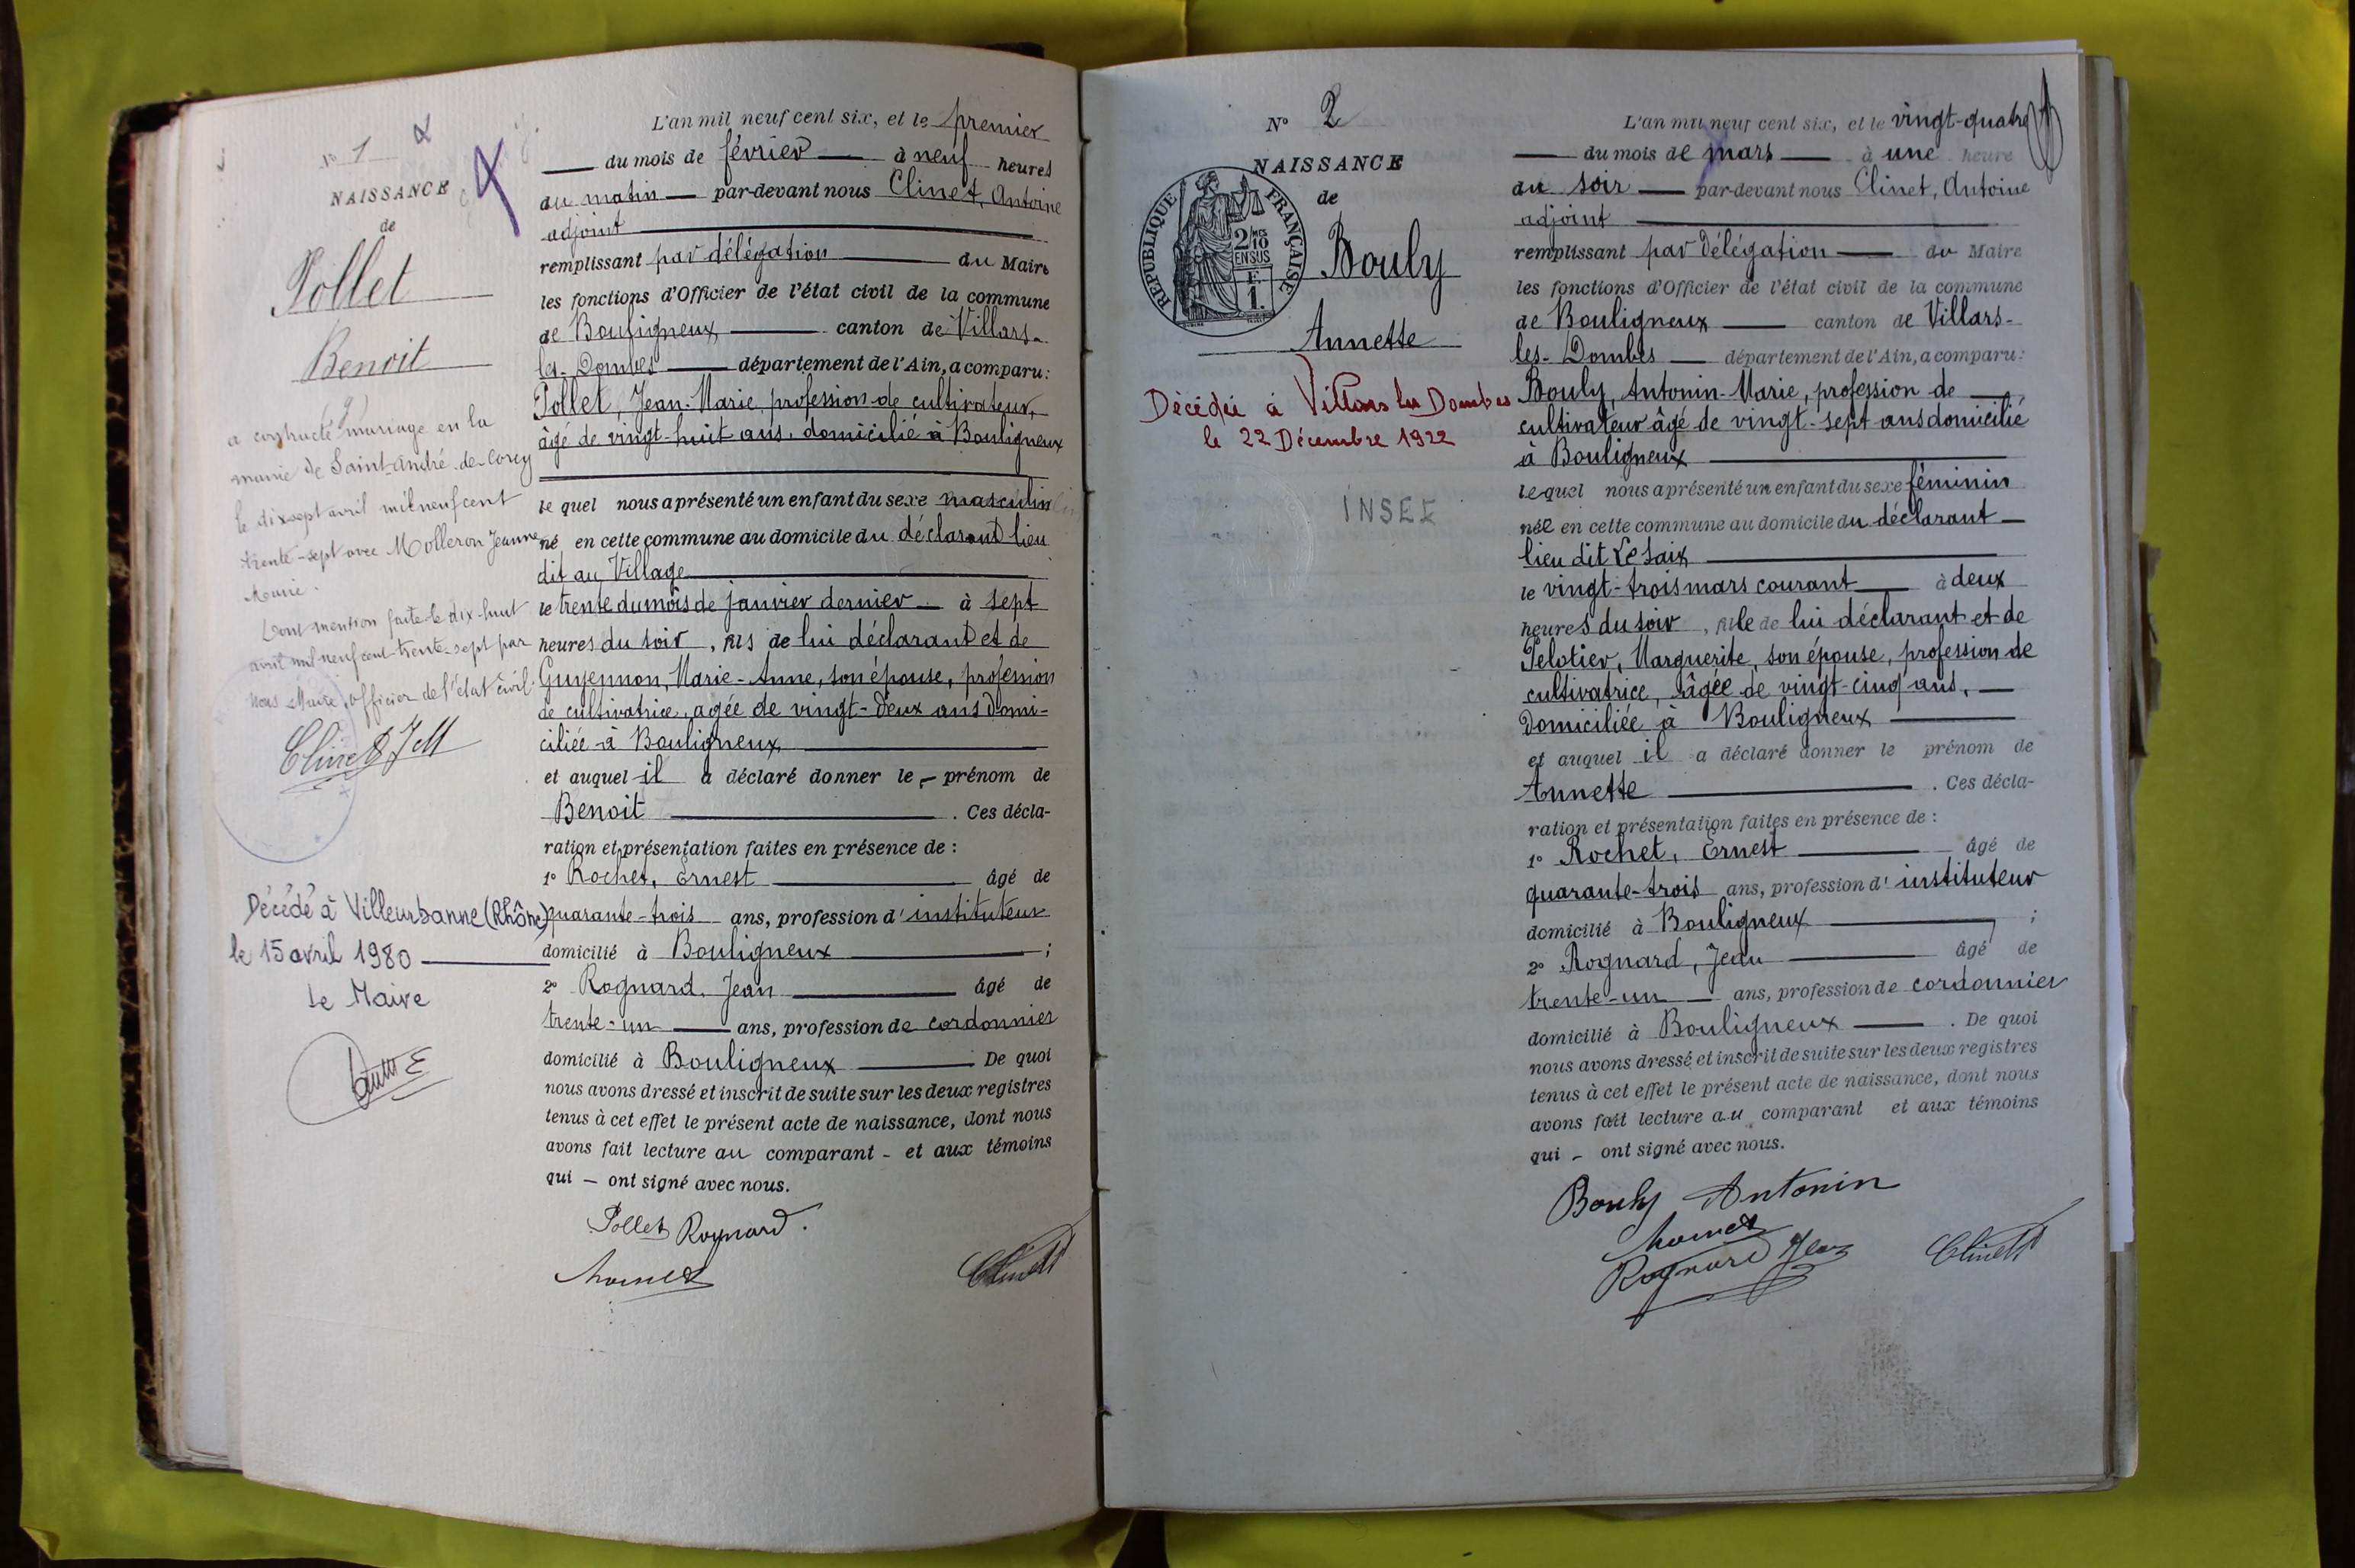 N° 1
NAISSANCE
de
Pollet
Benoit
a contracté mariage en la
mairie de Saint-André-de-Corcy
le dix sept avril mil neuf cent
trente-sept avec Molleron Jeanne
Marie.
Dont mention faite le dix-huit
avril mil neuf cent trente-sept par
nous Maire, officier de l'état civil.
Clinet JM
Décédé à Villeurbanne (Rhône)
le 15 avril 1980
Le Maire
L'an mil neuf cent six, et le premier
du mois de février à neuf heures
du matin par-devant nous Clinet, Antoine
adjoint
remplissant par délégation du Maire
les fonctions d'Officier de l'état civil de la commune
de Bouligneux canton de Villars-
les-Dombes département de l'Ain, a comparu:
Pollet, Jean-Marie, profession de cultivateur,
âgé de vingt-huit ans, domicilié à Bouligneux
le quel nous a présenté un enfant du sexe masculin
né en cette commune au domicile du déclarant lieu
dit au Village
le trente du mois de janvier dernier à sept
heures du soir, fils de lui déclarant et de
Guyennon, Marie-Anne, son épouse, profession
de cultivatrice, agée de vingt-deux ans domi-
ciliée à Bouligneux
et auquel il a déclaré donner le - prénom de
Benoit . Ces décla-
ration et présentation faites en présence de :
1° Rochet, Ernest âgé de
quarante-trois ans, profession d'instituteur
domicilié à Bouligneux ;
2° Rognard, Jean âgé de
trente-un ans, profession de cordonnier
domicilié à Bouligneux De quoi
nous avons dressé et inscrit de suite sur les deux registres
tenus à cet effet le présent acte de naissance, dont nous
avons fait lecture au comparant - et aux témoins
qui - ont signé avec nous.
Pollet Rognard.
Clinet
N° 2
NAISSANCE
de
RÉPUBLIQUE FRANÇAISE
2/10
EN SUS
Bouly
Annette
Décédée à Villars les Dombes
le 22 Décembre 1922
INSEE
L'an mil neuf cent six, et le vingt-quatre
du mois de mars à une heure
du soir par-devant nous Clinet, Antoine
adjoint
remplissant par délégation du Maire
les fonctions d'Officier de l'état civil de la commune
de Bouligneux canton de Villars-
les-Dombes département de l'Ain, a comparu:
Bouly, Antonin-Marie, profession de
cultivateur âgé de vingt-sept ans domicilié
à Bouligneux
le quel nous a présenté un enfant du sexe féminin
née en cette commune au domicile du déclarant
lieu dit Le Saix
le vingt-trois mars courant à deux
heures du soir, fille de lui déclarant et de
Pelotier, Marguerite, son épouse, profession de
cultivatrice, âgée de vingt-cinq ans,
domiciliée à Bouligneux
et auquel il a déclaré donner le prénom de
Annette . Ces décla-
ration et présentation faites en présence de :
1° Rochet, Ernest âgé de
quarante-trois ans, profession d'instituteur
domicilié à Bouligneux ;
2° Rognard, Jean âgé de
trente-un ans, profession de cordonnier
domicilié à Bouligneux . De quoi
nous avons dressé et inscrit de suite sur les deux registres
tenus à cet effet le présent acte de naissance, dont nous
avons fait lecture au comparant et aux témoins
qui - ont signé avec nous.
Bouly Antonin
Rognard Jean
Clinet